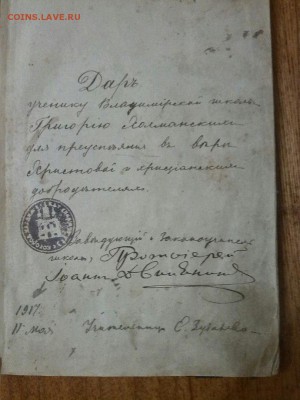 COINS.LAVE.RU
Даръ
ученику Владимірской школы
Григорію Холманскимъ
для преуспѣянія въ вѣрѣ
Христовой и христіанскимъ
добродѣтелямъ.
Завѣдующій и законоучитель
школы, Протоіерей
Іоаннъ
1917.
11 мая Учительница Е.